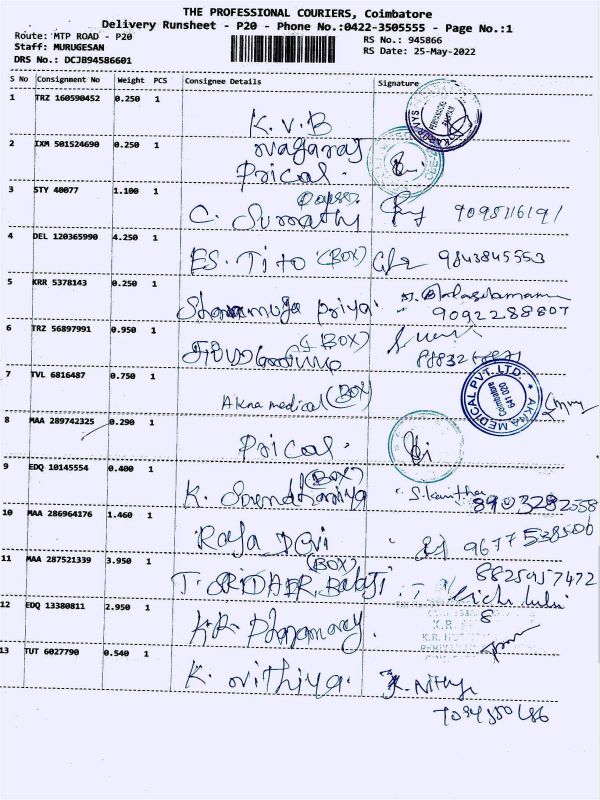 THE PROFESSIONAL COURIERS, Coimbatore
Delivery Runsheet - P20 - Phone No.:0422-3505555 - Page No.:1
Route: MTP ROAD - P20
RS No.: 945866
Staff: MURUGESAN
RS Date: 25-May-2022
DRS No.: DCJB94586601
S No Consignment No Weight PCS Consignee Details Signature
1 TRZ 160590452 0.250 1
K.V.B
2 IXM 501524690 0.250 1
Nagaraj
Prical.
3 STY 40077 1.100 1
C. Sumathy 9095116191
4 DEL 120365990 4.250 1
ES. Tito (BOX) 9843845553
5 KRR 5378143 0.250 1
Shanmuga Priya. 9092288807
6 TRZ 56897991 0.950 1
(BOX)
7 TVL 6816487 0.750 1
Akna medical (BOX)
AKNA MEDICAL PVT. LTD.
Coimbatore
641 020
8 MAA 289742325 0.290 1
Prical.
9 EDQ 10145554 0.400 1
(BOX)
K. S. Kavitha 8903282558
10 MAA 286964176 1.460 1
Raja Devi 9677538500
11 MAA 287521339 3.950 1
(BOX) 8825957472
T. SRIDHER Balaji
12 EDQ 13380811 2.950 1
K.R.
13 TUT 6027790 0.540 1
K. Nithiya. K. Nithy